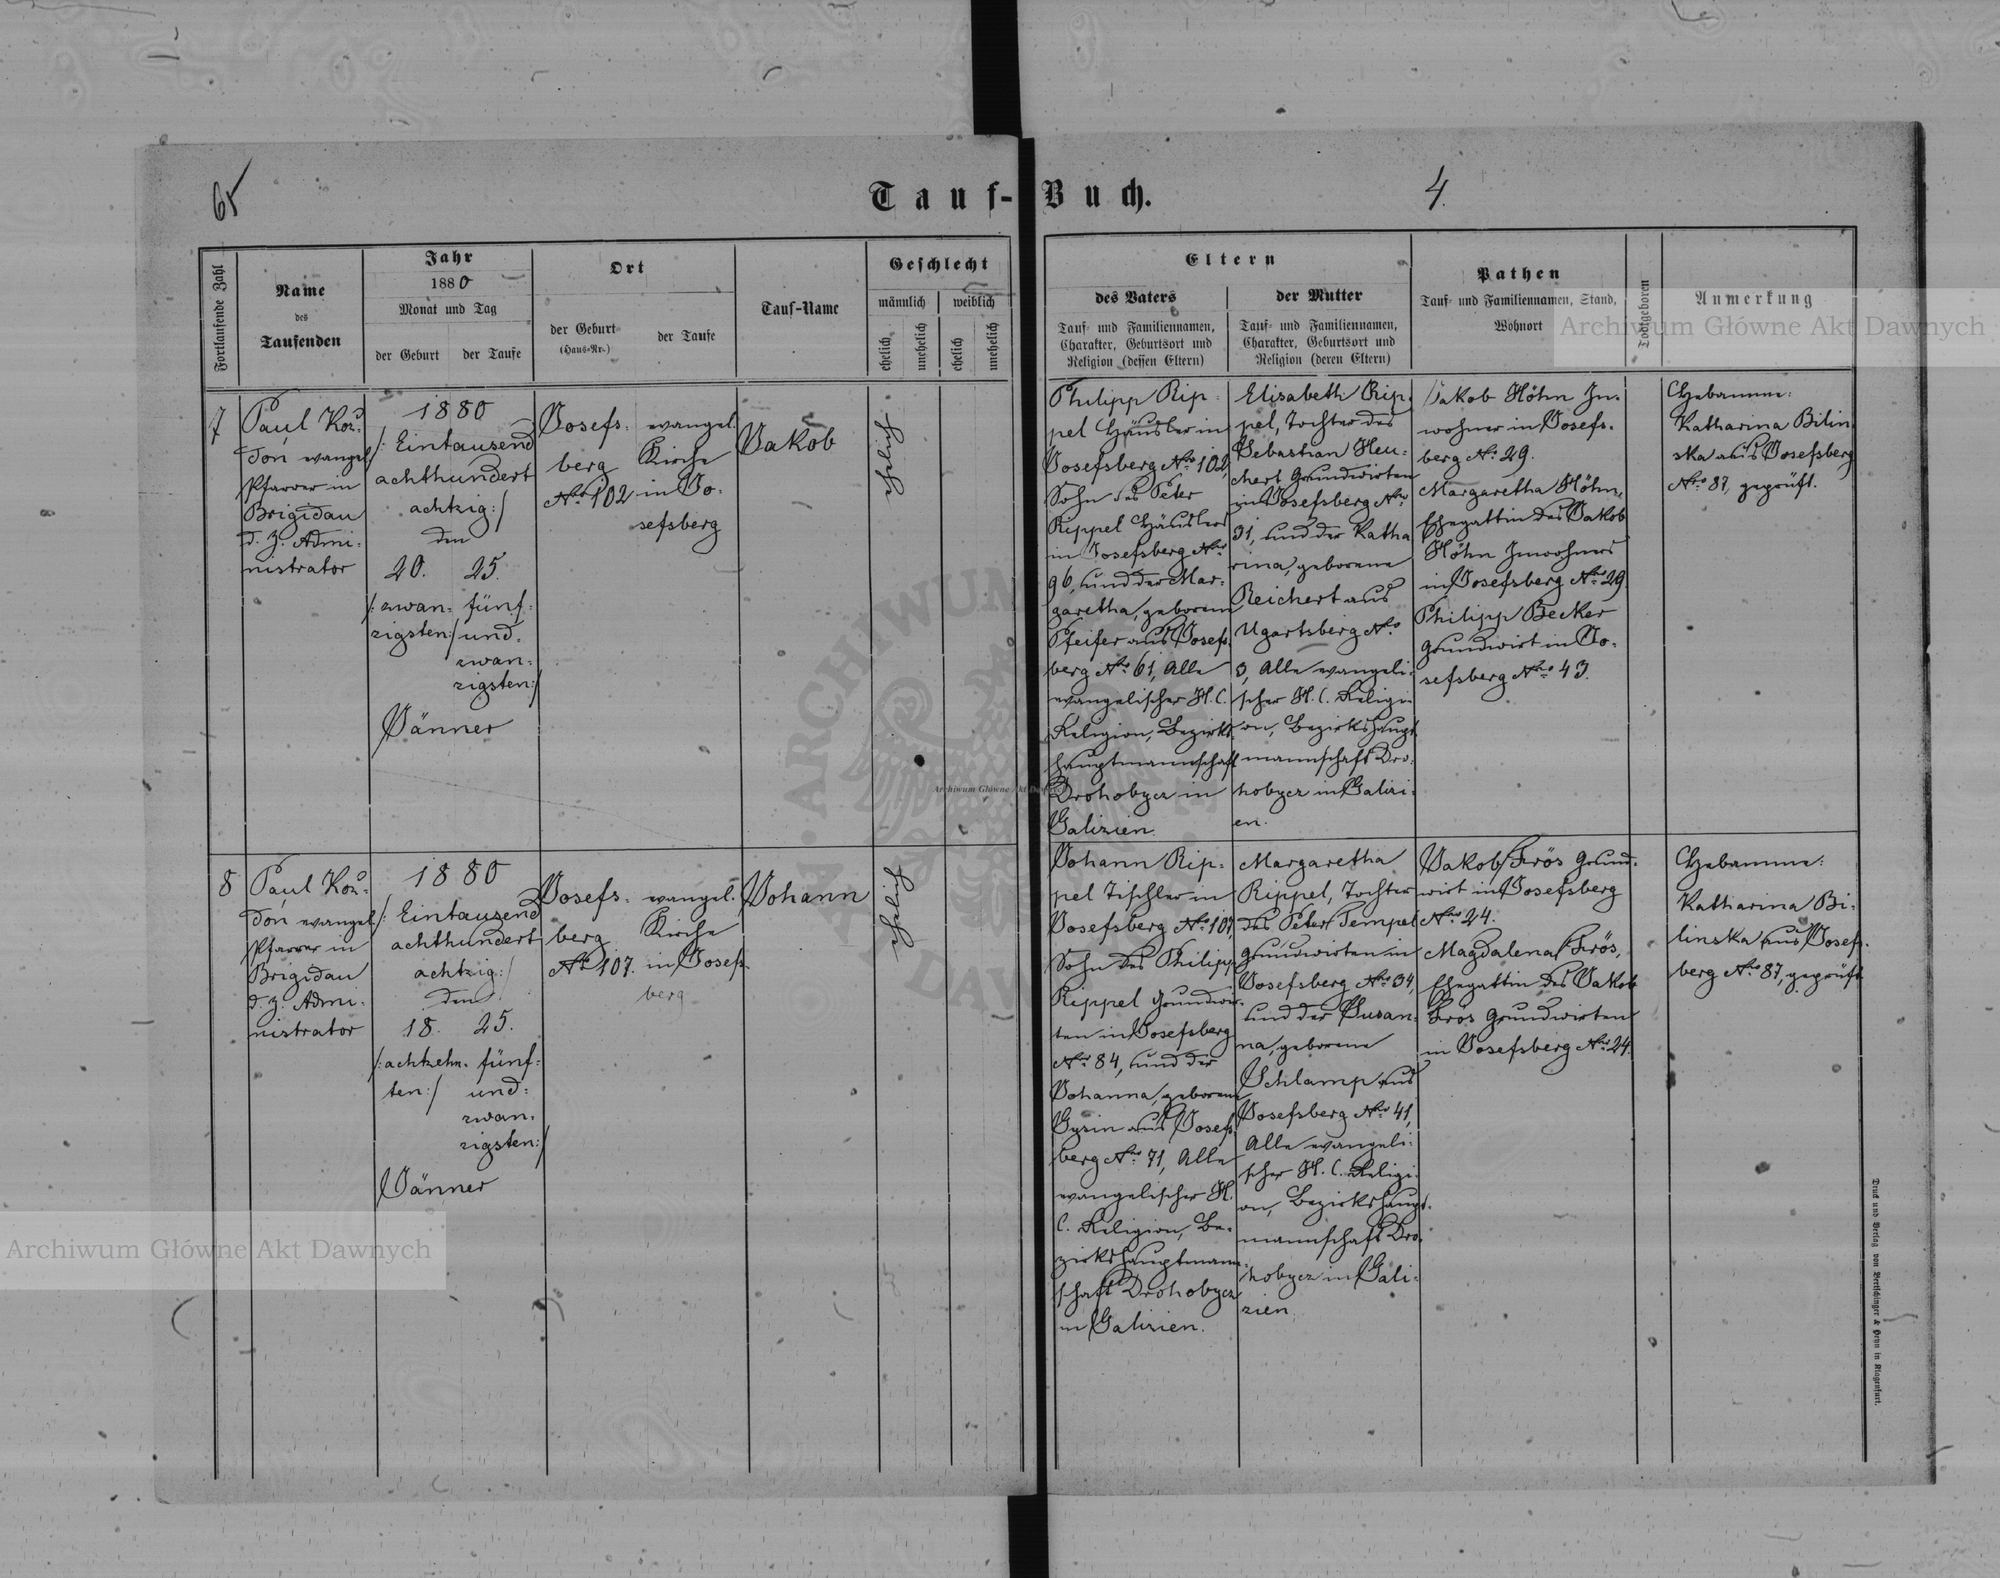 65
Tauf-Buch.
4.
Fortlaufende Zahl
Name
des
Taufenden
Jahr
1880
Monat und Tag
der Geburt
der Taufe
Ort
der Geburt
(Haus-Nr.)
der Taufe
Tauf-Name
Geschlecht
männlich
weiblich
ehelich
unehelich
ehelich
unehelich
Eltern
des Vaters
Tauf- und Familiennamen,
Charakter, Geburtsort und
Religion (dessen Eltern)
der Mutter
Tauf- und Familiennamen,
Charakter, Geburtsort und
Religion (deren Eltern)
Pathen
Tauf- und Familiennamen, Stand,
Wohnort
Todtgeboren
Anmerkung
Archiwum Główne Akt Dawnych
7
Paul Kou-
don evangel.
Pfarrer in
Brigidau
d. Z. Admi-
nistrator
1880
/: Eintausend
achthundert
achtzig :/
den
20. 25.
/: zwan- fünf-
zigsten :/ und-
zwan-
zigsten :/
Jänner
Josefs-
berg
Nro 102
evangel.
Kirche
in Jo-
sefsberg
Jakob
ehelich
Philipp Rip-
pel Häusler in
Josefsberg Nro 102,
Sohn des Peter
Rippel Häuslers
in Josefsberg Nro
96, und der Mar-
garetha, geborene
Pfeifer aus Josefs-
berg Nro 61, Alle
evangelischer H. C.
Religion, Bezirks-
hauptmannschaft
Drohobycz in
Galizien.
Elisabeth Rip-
pel, Tochter des
Sebastian Heu-
chert Grundwirten
in Josefsberg Nro
31, und der Katha
rina, geborene
Reichert aus
Ugartsberg Nro
3, Alle evangeli-
scher H. C. Religi-
on, Bezirkshaupt
mannschaft Dro-
hobycz in Galizi-
en.
Jakob Höhn In-
wohner in Josefs-
berg Nro 29.
Margaretha Höhn,
Ehegattin des Jakob
Höhn Inwohners
in Josefsberg Nro 29.
Philipp Becker
Grundwirt in Jo-
sefsberg Nro 43.
Hebamme:
Katharina Bilin-
ska aus Josefsberg
Nro 87, geprüft.
8
Paul Kou-
don evangel.
Pfarrer in
Brigidau
d. Z. Admi-
nistrator
1880
/: Eintausend
achthundert
achtzig :/
den
18. 25.
/: achtzehn- fünf-
ten :/ und-
zwan-
zigsten :/
Jänner
Josefs-
berg
Nro 107.
evangel.
Kirche
in Josefs-
berg
Johann
ehelich
Johann Rip-
pel Tischler in
Josefsberg Nro 107,
Sohn des Philipp
Rippel Grundwir-
ten in Josefsberg
Nro 84, und der
Johanna, geborene
Gysin aus Josefs-
berg Nro 71, Alle
evangelischer H.
C. Religion, Be-
zirkshauptmann-
schaft Drohobycz
in Galizien.
Margaretha
Rippel, Tochter
des Peter Tempel
Grundwirten in
Josefsberg Nro 34,
und der Susan-
na, geborene
Schlamp aus
Josefsberg Nro 41,
Alle evangeli-
scher H. C. Religi-
on, Bezirkshaupt-
mannschaft Dro-
hobycz in Gali-
zien.
Jakob Frös Grund-
wirt in Josefsberg
Nro 24.
Magdalena Frös,
Ehegattin des Jakob
Frös Grundwirten
in Josefsberg Nro 24.
Hebamme:
Katharina Bi-
linska aus Josefs-
berg Nro 87, geprüft
Archiwum Główne Akt Dawnych
Archiwum Główne Akt Dawnych
Druck und Verlag von Bertschinger & Heyn in Klagenfurt.